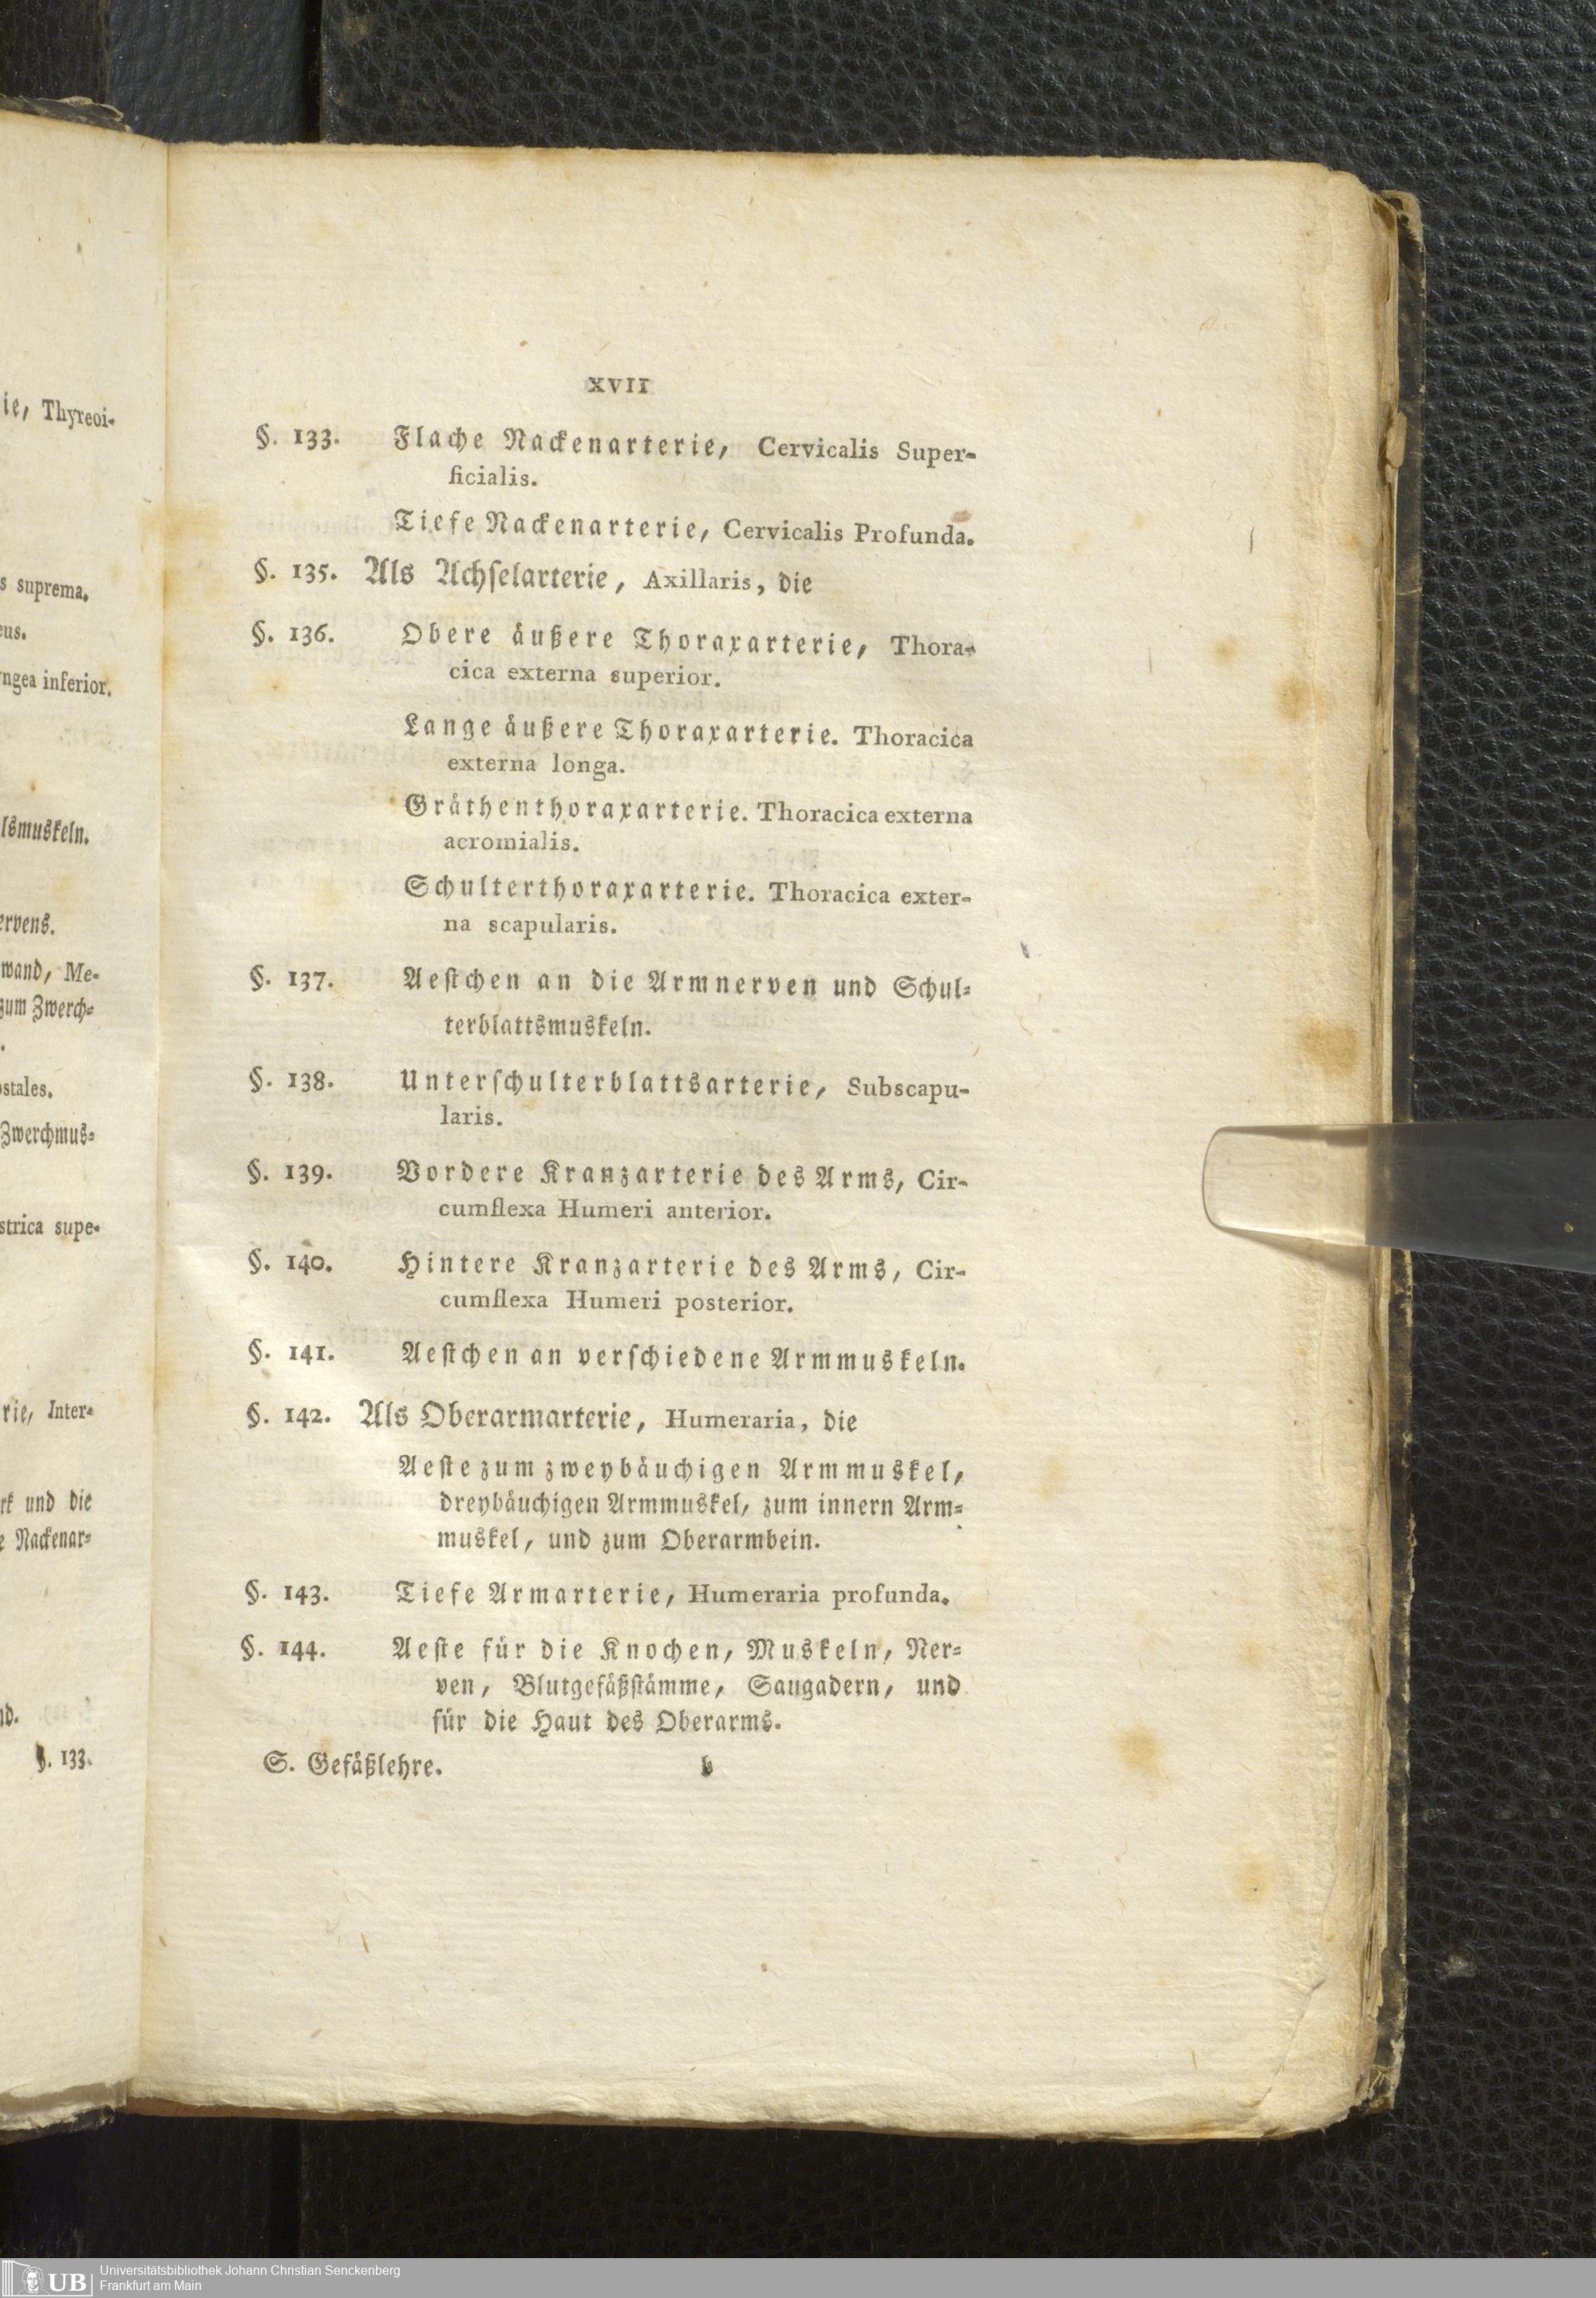 ie, Thyreoi-
s suprema.
eus.
ngea inferior.
lsmuskeln.
ervens.
wand, Me-
zum Zwerch-
.
ostales.
Zwerchmus-
strica supe-
rie, Inter-
rk und die
e Nackenar-
nd.
§. 133.
XVII
§. 133. Flache Nackenarterie, Cervicalis Super-
ficialis.
Tiefe Nackenarterie, Cervicalis Profunda.
§. 135. Als Achſelarterie, Axillaris, die
§. 136. Obere äußere Thoraxarterie, Thora-
cica externa superior.
Lange äußere Thoraxarterie. Thoracica
externa longa.
Gräthenthoraxarterie. Thoracica externa
acromialis.
Schulterthoraxarterie. Thoracica exter-
na scapularis.
§. 137. Aeſtchen an die Armnerven und Schul-
terblattsmuskeln.
§. 138. Unterſchulterblattsarterie, Subscapu-
laris.
§. 139. Vordere Kranzarterie des Arms, Cir-
cumflexa Humeri anterior.
§. 140. Hintere Kranzarterie des Arms, Cir-
cumflexa Humeri posterior.
§. 141. Aeſtchen an verſchiedene Armmuskeln.
§. 142. Als Oberarmarterie, Humeraria, die
Aeſte zum zweybäuchigen Armmuskel,
dreybäuchigen Armmuskel, zum innern Arm-
muskel, und zum Oberarmbein.
§. 143. Tiefe Armarterie, Humeraria profunda.
§. 144. Aeſte für die Knochen, Muskeln, Ner-
ven, Blutgefäßſtämme, Saugadern, und
für die Haut des Oberarms.
S. Gefäßlehre. b
UB Universitätsbibliothek Johann Christian Senckenberg
Frankfurt am Main